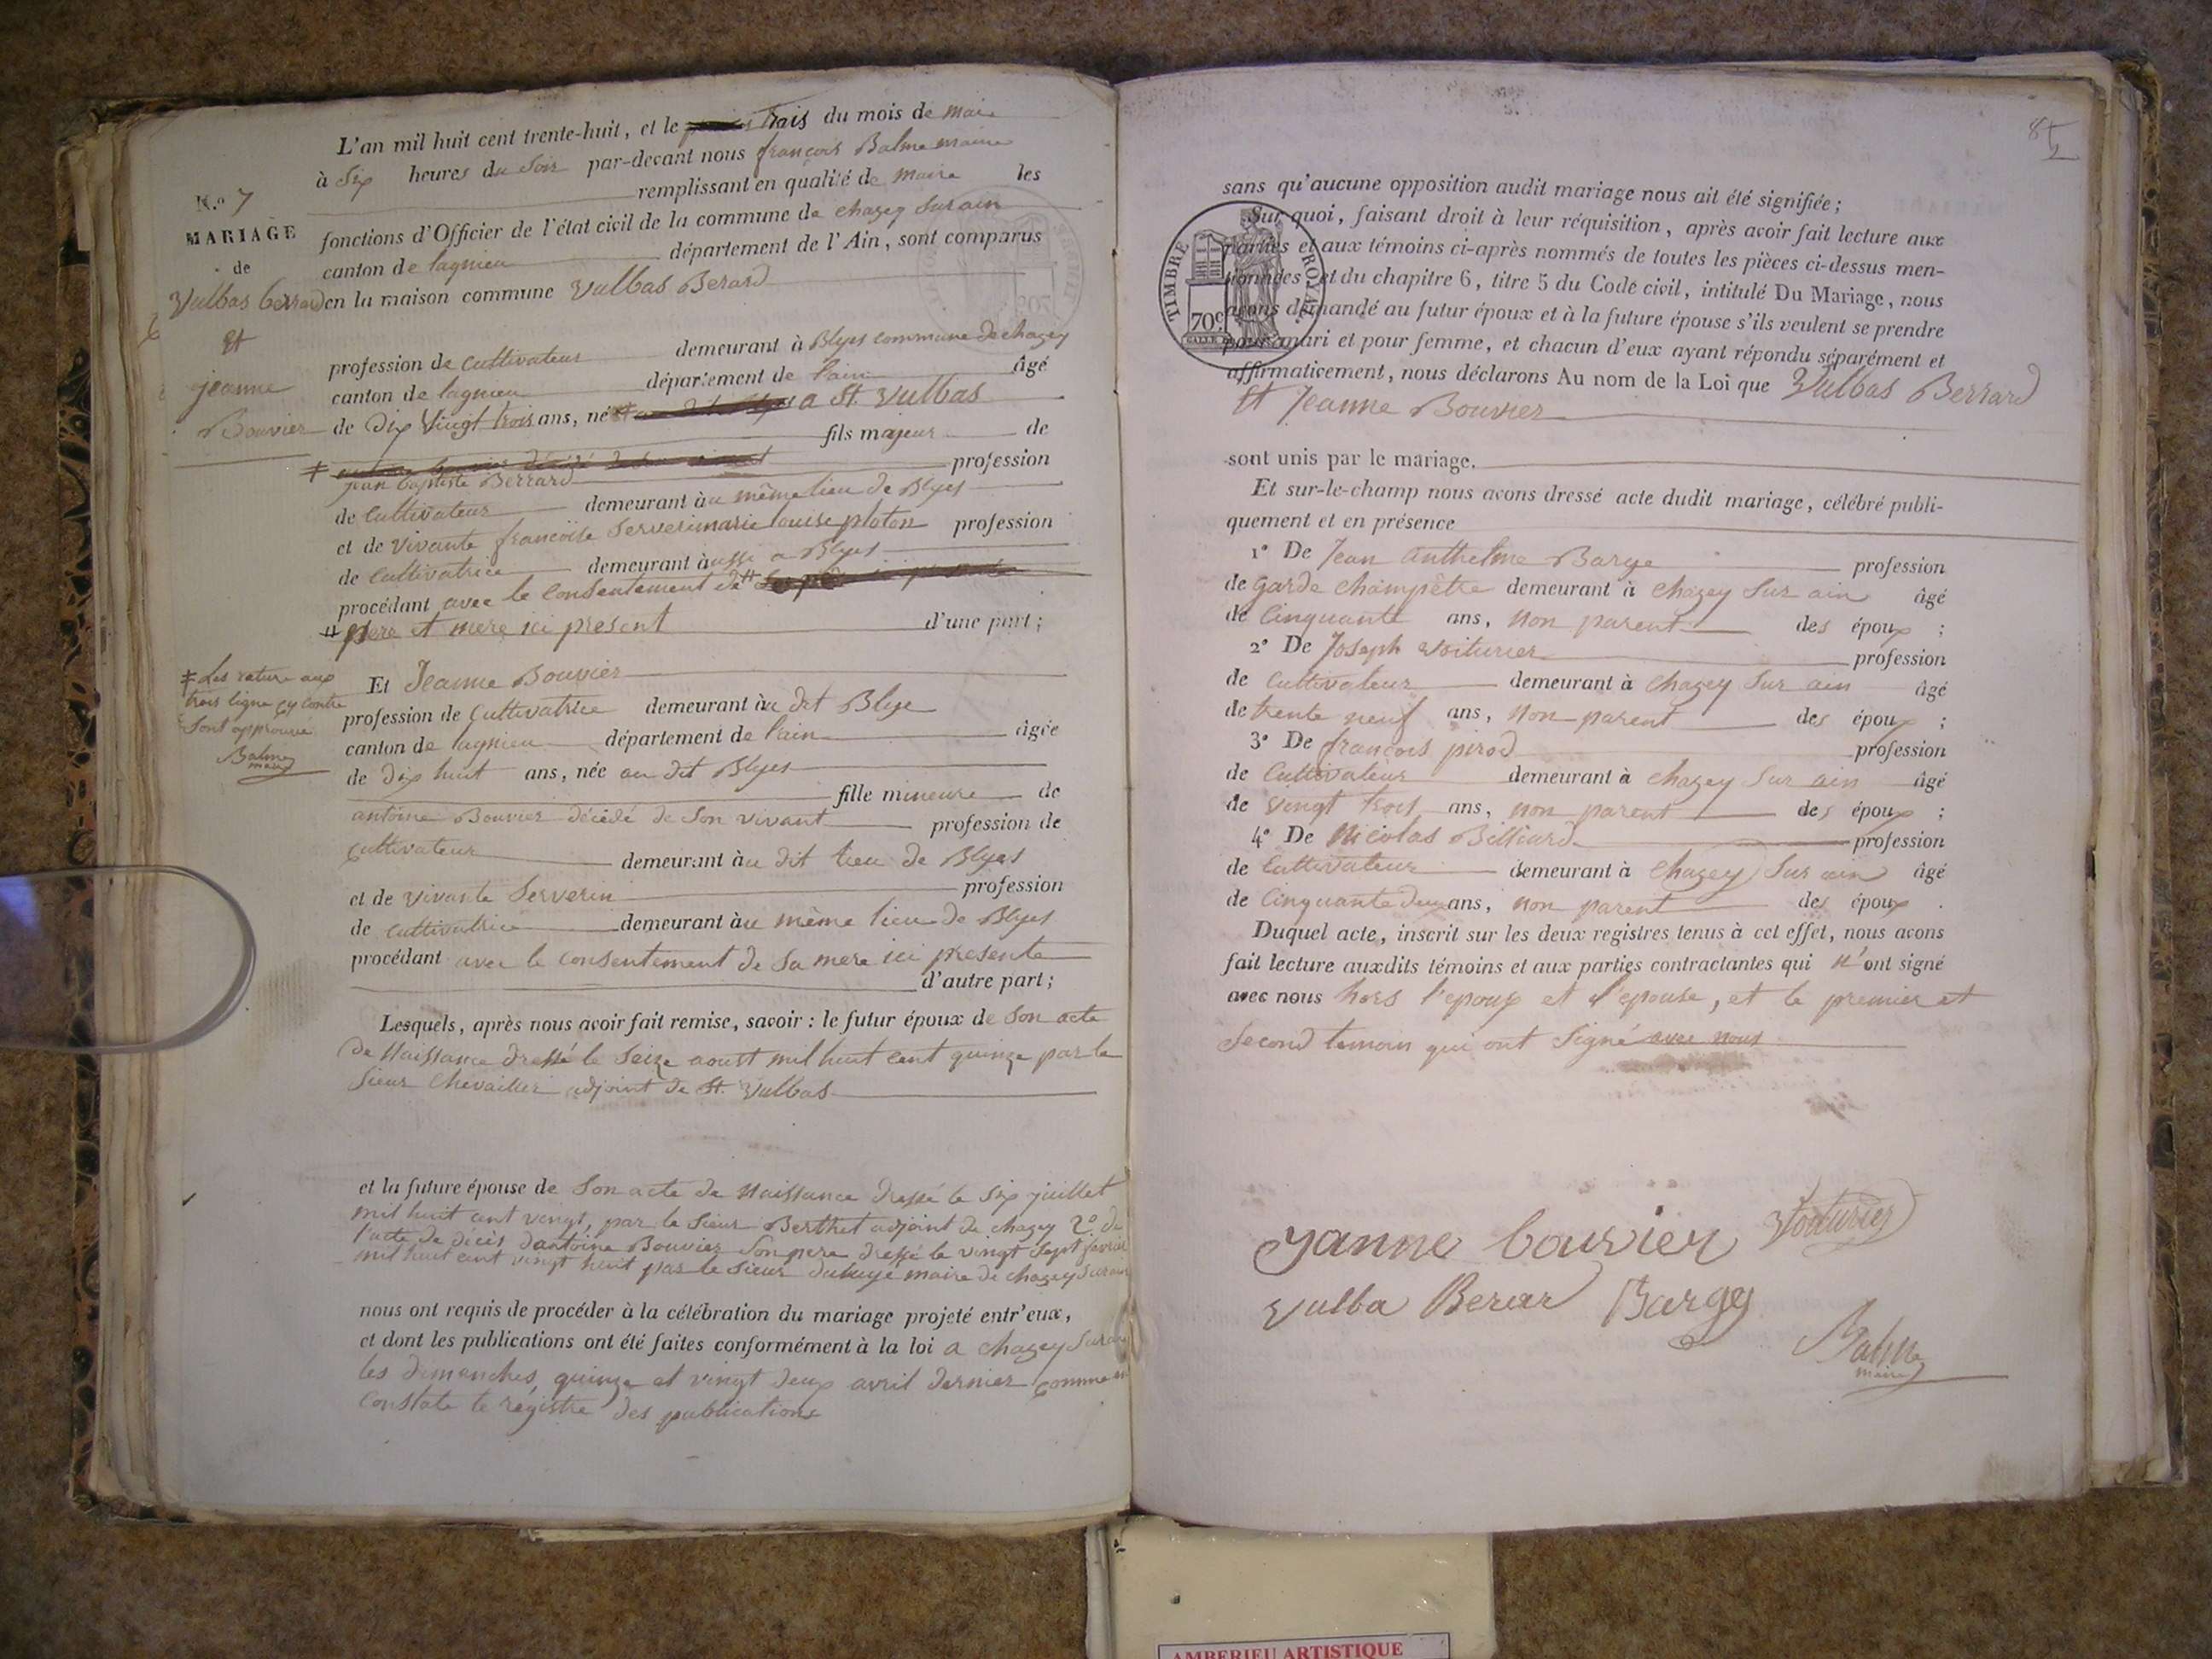 L'an mil huit cent trente-huit, et le trois du mois de mai
à Six heures du Soir par-devant nous françois Balme maire
remplissant en qualité de maire les
fonctions d'Officier de l'état civil de la commune de chazey Sur ain
canton de lagnieu département de l'Ain, sont comparus
en la maison commune Vulbas Berard
profession de Cultivateur demeurant à Blyes commune de chazey
canton de lagnieu département de l'ain âgé
de Dix Vingt trois ans, né a St. Vulbas
fils majeur de
profession
jean baptiste Berrard
de Cultivateur demeurant àu même lieu de Blyes
et de Vivante françoise Serverin marie louise ploton profession
de Cultivatrice demeurant àussi a Blyes
procédant avec le Consentement de
# pere et mere ici present d'une part;
N.o 7
MARIAGE
de
Vulbas berrard
Et
jeanne
Bouvier
‡ Les rature aux
trois ligne cy contre
Sont approuvé
Balme
maire
Et Jeanne Bouvier
profession de Cultivatrice demeurant àu dit Blye
canton de lagnieu département de l'ain âgée
de dix huit ans, née au dit Blyes
fille mineure de
antoine Bouvier décédé de Son vivant profession de
Cultivateur demeurant àu dit lieu de Blyes
et de vivante Serverin profession
de cultivatrice demeurant àu même lieu de Blyes
procédant avec le consentement de Sa mere ici presente
d'autre part;
Lesquels, après nous avoir fait remise, savoir: le futur époux de Son acte
de Naissance dressé le Seize aoust mil huit cent quinze par le
Sieur Chevallier adjoint de St. Vulbas
et la future épouse de Son acte de Naissance dressé le Six juillet
mil huit cent vingt, par le Sieur Berthet adjoint de chazey 2.o de
l'acte de décès d'antoine Bouvier Son pere dressé le vingt Sept fevrier
mil huit cent vingt huit par le Sieur maire de chazey Sur ain
nous ont requis de procéder à la célébration du mariage projeté entr'eux,
et dont les publications ont été faites conformément à la loi a chazey Sur ain
les dimanches quinze et vingt deux avril dernier comme en
Constate le régistre des publications
85
2
sans qu'aucune opposition audit mariage nous ait été signifiée;
Sur quoi, faisant droit à leur réquisition, après avoir fait lecture aux
parties et aux témoins ci-après nommés de toutes les pièces ci-dessus men-
tionnées et du chapitre 6, titre 5 du Code civil, intitulé Du Mariage, nous
avons demandé au futur époux et à la future épouse s'ils veulent se prendre
pour mari et pour femme, et chacun d'eux ayant répondu séparément et
affirmativement, nous déclarons Au nom de la Loi que Vulbas Berrard
Et Jeanne Bouvier
TIMBRE ROYAL
70c
sont unis par le mariage.
Et sur-le-champ nous avons dressé acte dudit mariage, célébré publi-
quement et en présence
1° De Jean Anthelme Barge profession
de Garde Champêtre demeurant à Chazey Sur ain âgé
de Cinquante ans, non parent des époux ;
2° De Joseph Voiturier profession
de Cultivateur demeurant à Chazey Sur ain âgé
de trente neuf ans, non parent des époux ;
3° De françois pirod profession
de Cultivateur demeurant à chazey Sur ain âgé
de vingt trois ans, non parent des époux ;
4° De Nicolas Billiard profession
de Cultivateur demeurant à Chazey Sur ain âgé
de Cinquante deux ans, non parent des époux .
Duquel acte, inscrit sur les deux registres tenus à cet effet, nous avons
fait lecture auxdits témoins et aux parties contractantes qui n'ont signé
avec nous hors l'epoux et l'epouse, et le premier et
Second temoin qui ont Signé avec nous
Janne bouvier Voiturier
vulba Berar Barge
Balme
maire
AMBERIEU ARTISTIQUE